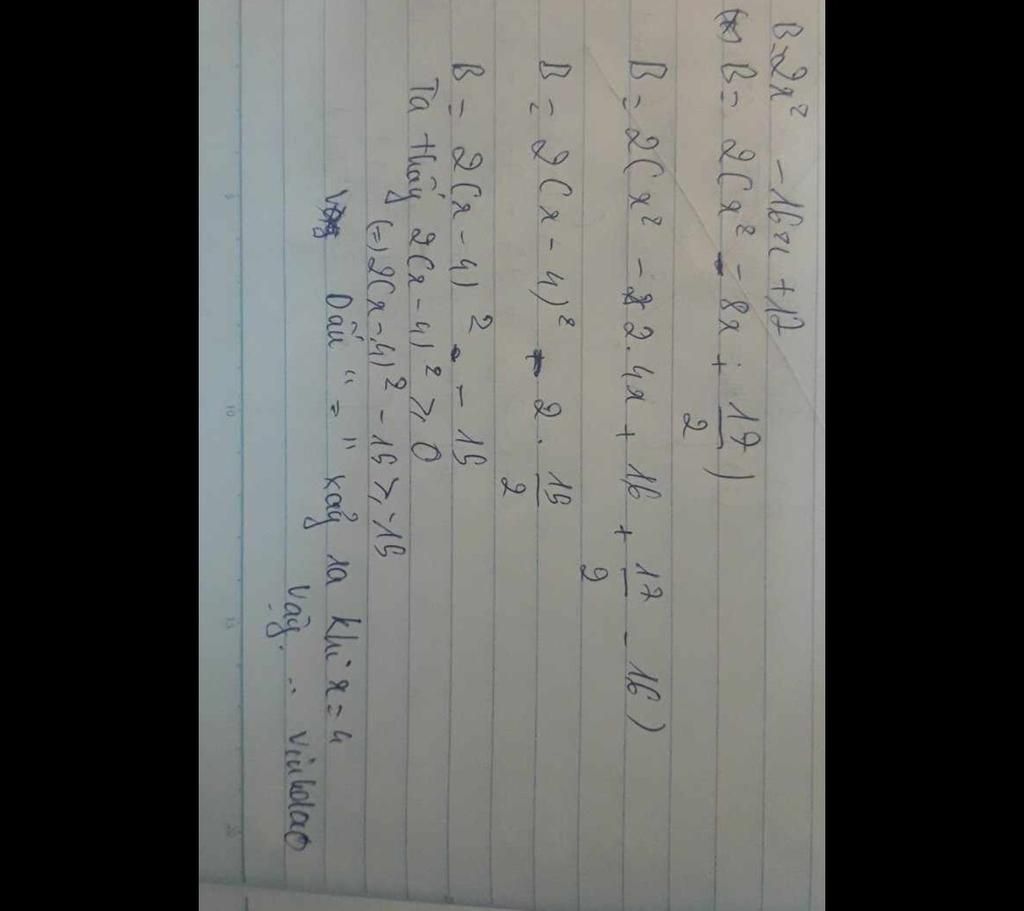 B=2x² - 16x + 17
(*) B = 2(x² - 8x + 17/2)
B = 2(x² - 2.4x + 16 + 17/2 - 16)
B = 2(x - 4)² - 2. 15/2
B = 2(x - 4)² - 15
Ta thấy 2(x - 4)² ≥ 0
(=) 2(x - 4)² - 15 ≥ -15
Dấu "=" xảy ra khi x = 4
Vậy ..